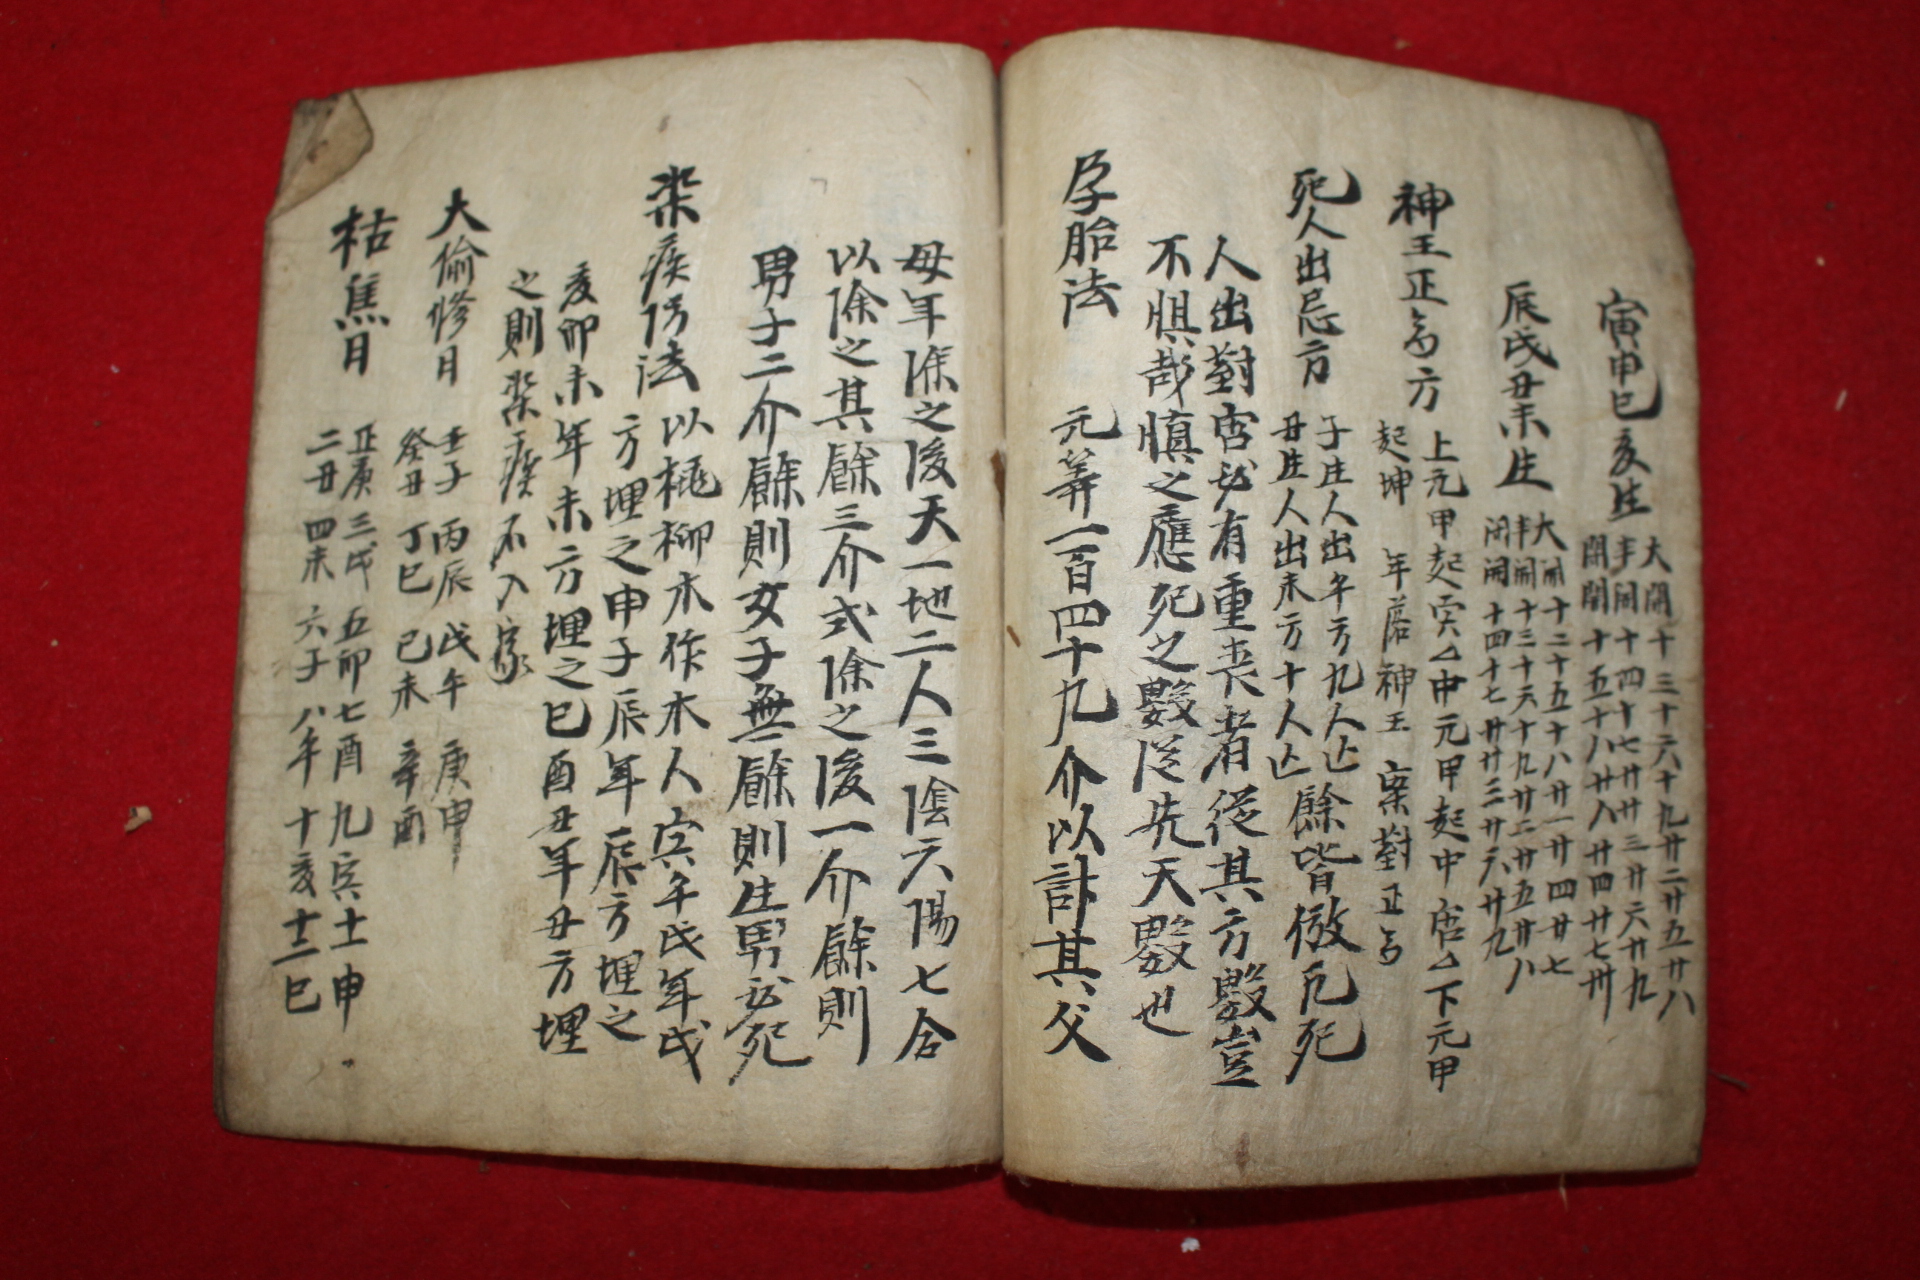 寅申巳亥生
大開十三十六十九廿二廿五廿八
半開十四十七廿廿三廿六廿九
閉開十五十八廿八廿四廿七卅
辰戌丑未生
大開十二十五十八廿一廿四廿七
半開十三十六十九廿二廿五廿八
閉開十四十七廿廿三廿六廿九
神王正方
上元甲起中元甲起中宮下元甲
起坤 年 神王 對正
死人出忌方
子生人出午方九人亡
丑生人出未方十人亡
餘皆倣此死
人出對宮必有重丧者從其方數豈
不愼哉愼之應死之數從先天數也
孕胎法 元筭一百四十九介以計其父
母年除之後天一地二人三陰六陽七合
以除之其餘三介式除之後一介餘則
男子二介餘則女子無餘則生男必死
染疾防法 以桃柳木作木人寅午戌年戌
方埋之申子辰年辰方埋之
巳酉丑年丑方埋
亥卯未年未方埋之
之則染疾不入家
大偷修日
壬子 丙辰 戊午 庚申
癸丑 丁巳 己未 辛酉
枯焦日
正庚三戌五卯七酉九寅十一申
二丑四未六子八午十亥十二巳